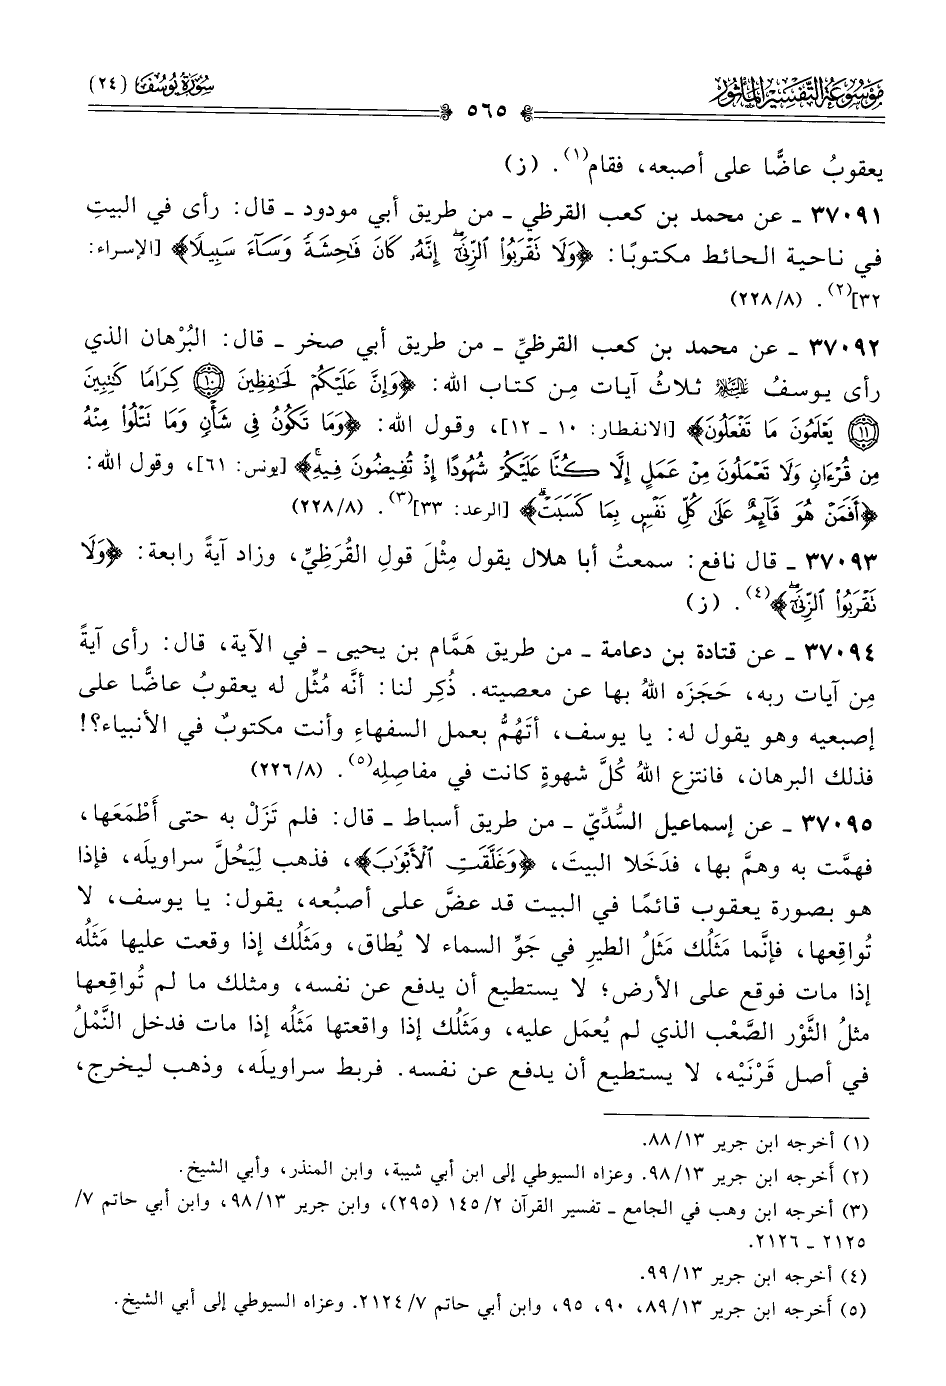 مَوْسُوعَةُ التَّفْسِيرِ المَأْثُور
سُورَةُ يُوسُفَ (٢٤)
٥٦٥
يعقوبُ عاضًّا على أصبعه، فقام(١). (ز)
٣٧٠٩١ ـ عن محمد بن كعب القرظي ـ من طريق أبي مودود ـ قال: رأى في البيتِ
في ناحية الحائط مكتوبًا: ﴿وَلَا نَقْرَبُوا۟ ٱلزِّنَىٰٓ ۖ إِنَّهُۥ كَانَ فَـٰحِشَةً وَسَآءَ سَبِيلًا﴾ [الإسراء:
٣٢](٢). (٢٢٨/٨)
٣٧٠٩٢ ـ عن محمد بن كعب القرظيِّ ـ من طريق أبي صخر ـ قال: البُرْهان الذي
رأى يوسفُ عليه السلام ثلاثُ آيات مِن كتاب الله: ﴿وَإِنَّ عَلَيْكُمْ لَحَـٰفِظِينَ ١٠ كِرَامًا كَـٰتِبِينَ
١١ يَعْلَمُونَ مَا تَفْعَلُونَ﴾ [الانفطار: ١٠ ـ ١٢]، وقول الله: ﴿وَمَا تَكُونُ فِى شَأْنٍ وَمَا نَتْلُوا۟ مِنْهُ
مِن قُرْءَانٍ وَلَا تَعْمَلُونَ مِنْ عَمَلٍ إِلَّا كُنَّا عَلَيْكُمْ شُهُودًا إِذْ تُفِيضُونَ فِيهِ ۚ﴾ [يونس: ٦١]، وقول الله:
﴿أَفَمَنْ هُوَ قَآئِمٌ عَلَىٰ كُلِّ نَفْسٍ بِمَا كَسَبَتْ ۗ﴾ [الرعد: ٣٣](٣). (٢٢٨/٨)
٣٧٠٩٣ ـ قال نافع: سمعتُ أبا هلال يقول مِثْلَ قولِ القُرَظِيِّ، وزاد آيةً رابعة: ﴿وَلَا
نَقْرَبُوا۟ ٱلزِّنَىٰٓ ۖ﴾(٤). (ز)
٣٧٠٩٤ ـ عن قتادة بن دعامة ـ من طريق هَمَّام بن يحيى ـ في الآية، قال: رأى آيةً
مِن آيات ربه، حَجَزَه اللهُ بها عن معصيته. ذُكِر لنا: أنَّه مُثِّل له يعقوبُ عاضًّا على
إصبعيه وهو يقول له: يا يوسف، أتَهُمُّ بعمل السفهاءِ وأنت مكتوبٌ في الأنبياء؟!
فذلك البرهان، فانتزع اللهُ كُلَّ شهوةٍ كانت في مفاصِلِه(٥). (٢٢٦/٨)
٣٧٠٩٥ ـ عن إسماعيل السُّدِّيِّ ـ من طريق أسباط ـ قال: فلم تَزَلْ به حتى أَطْمَعَها،
فهمَّت به وهمَّ بها، فدَخَلا البيتَ، ﴿وَغَلَّقَتِ ٱلْأَبْوَٰبَ﴾، فذهب لِيَحُلَّ سراويلَه، فإذا
هو بصورة يعقوب قائمًا في البيت قد عضَّ على أصبُعه، يقول: يا يوسف، لا
تُواقِعها، فإنَّما مَثَلُك مَثَلُ الطيرِ في جَوِّ السماء لا يُطاق، ومَثَلُك إذا وقعت عليها مَثَلُه
إذا مات فوقع على الأرض؛ لا يستطيع أن يدفع عن نفسه، ومثلك ما لم تُواقِعها
مثلُ الثَّوْر الصَّعْب الذي لم يُعمَل عليه، ومَثَلُك إذا واقعتها مَثَلُه إذا مات فدخل النَّمْلُ
في أصل قَرْنَيْه، لا يستطيع أن يدفع عن نفسه. فربط سراويله، وذهب ليخرج،
(١) أخرجه ابن جرير ١٣/ ٨٨.
(٢) أخرجه ابن جرير ١٣/ ٩٨. وعزاه السيوطي إلى ابن أبي شيبة، وابن المنذر، وأبي الشيخ.
(٣) أخرجه ابن وهب في الجامع ـ تفسير القرآن ٢/ ١٤٥ (٢٩٥)، وابن جرير ١٣/ ٩٨، وابن أبي حاتم ٧/
٢١٢٥ ـ ٢١٢٦.
(٤) أخرجه ابن جرير ١٣/ ٩٩.
(٥) أخرجه ابن جرير ١٣/ ٨٩، ٩٠، ٩٥، وابن أبي حاتم ٧/ ٢١٢٤. وعزاه السيوطي إلى أبي الشيخ.